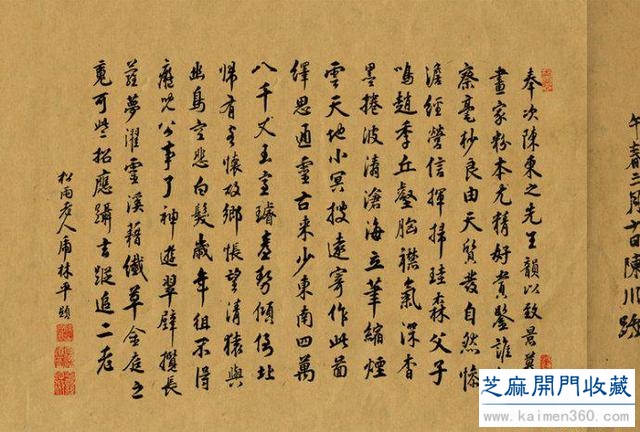 奉次陳東之先生韻以致景莫
畫家粉本尤精好賞鑒誰
察毫杪良由天質發自然慘
澹經營信揮掃珪森父子
鳴趙季丘壑胸襟氣深杳
墨捲波濤滄海立筆縮煙
雲天地小冥搜遠寄作此畣
繹思通靈古來少東南四萬
八千丈玉室璿臺勢傾倚北
歸有客懷故鄉悵望清猿與
幽鳥空悲白髮歲年徂不得
癡兒公事了神遊翠壁攬長
蘿夢濯靈溪藉纖草金庭之
更可些招應躡玄蹤追二老
松雨老人甫林平顯
午春二月十日陳川
芝麻開門收藏
www.kaimen360.com